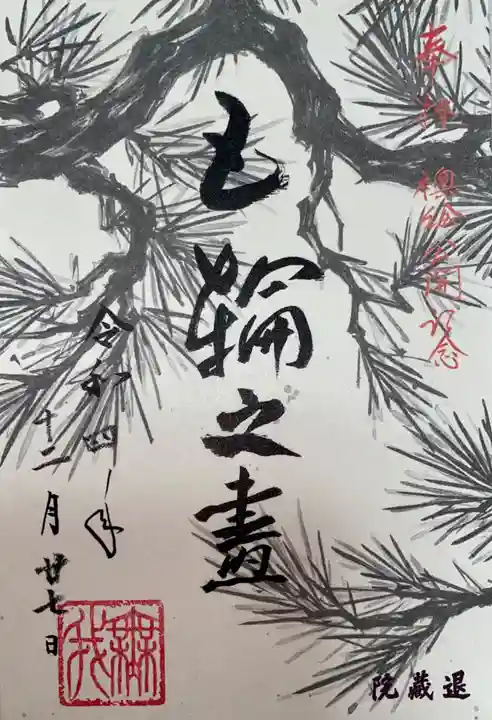 奉拝 襖絵公開記念
五輪之畫
令和四年
十二月廿七日
無我
退藏院